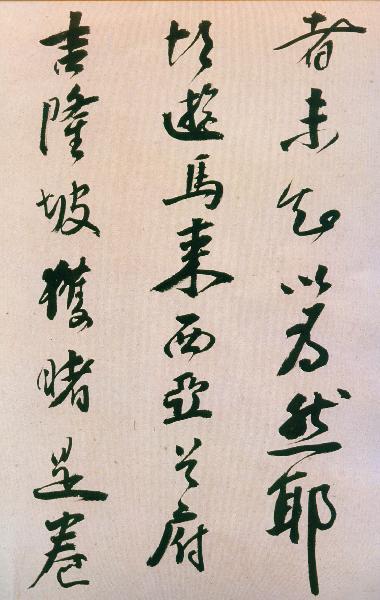 者未知以為然耶
頃遊馬來西亞首府
吉隆坡獲睹是卷